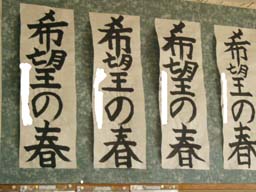 希望の春
希望の春
希望の春
希望の春